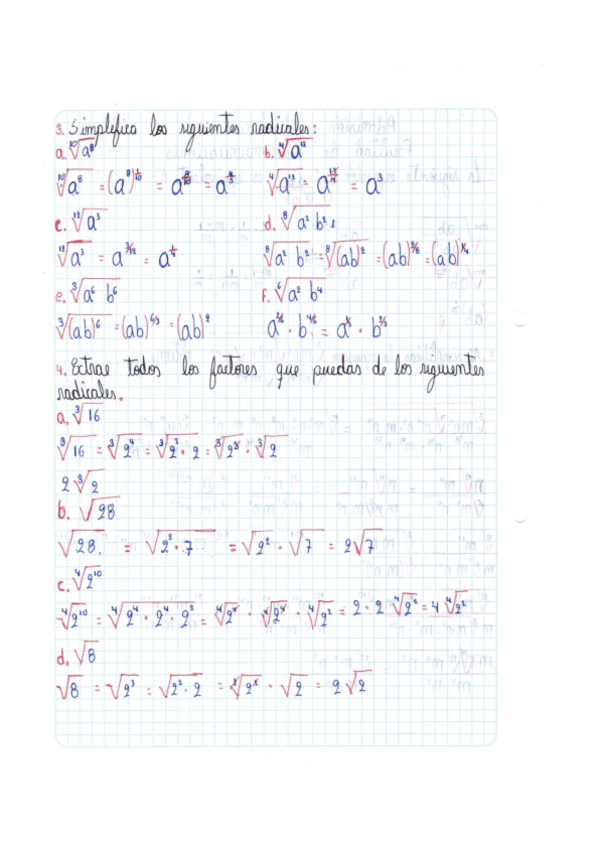 3. Simplifica los siguientes radicales:
a. ¹⁰√a⁸ b. ⁴√a¹²
¹⁰√a⁸ = (a⁸)^1/10 = a^8/10 = ⁴√a¹² = a^12/4 = a³
c. ¹²√a³ d. ⁸√a² b²
¹²√a³ = a^3/12 = a^1/4 ⁸√a² b² = ⁸√(ab)² = (ab)^2/8 = (ab)^1/4
e. ³√a⁶ b⁶ f. ⁶√a² b⁴
³√(ab)⁶ = (ab)^6/3 = (ab)² a^2/6 · b^4/6 = a^1/3 · b^2/3
4. Extrae todos los factores que puedas de los siguientes
radicales.
a. ³√16
³√16 = ³√2⁴ = ³√2³ · 2 = ³√2³ · ³√2
2 ³√2
b. √28
√28. = √2² · 7 = √2² · √7 = 2√7
c. ⁴√2¹⁰
⁴√2¹⁰ = ⁴√2⁴ · 2⁴ · 2² = ⁴√2⁴ · ⁴√2⁴ · ⁴√2² = 2 · 2 ⁴√2² = 4 ⁴√2²
d. √8
√8 = √2³ = √2² · 2 = ²√2² · √2 = 2 √2